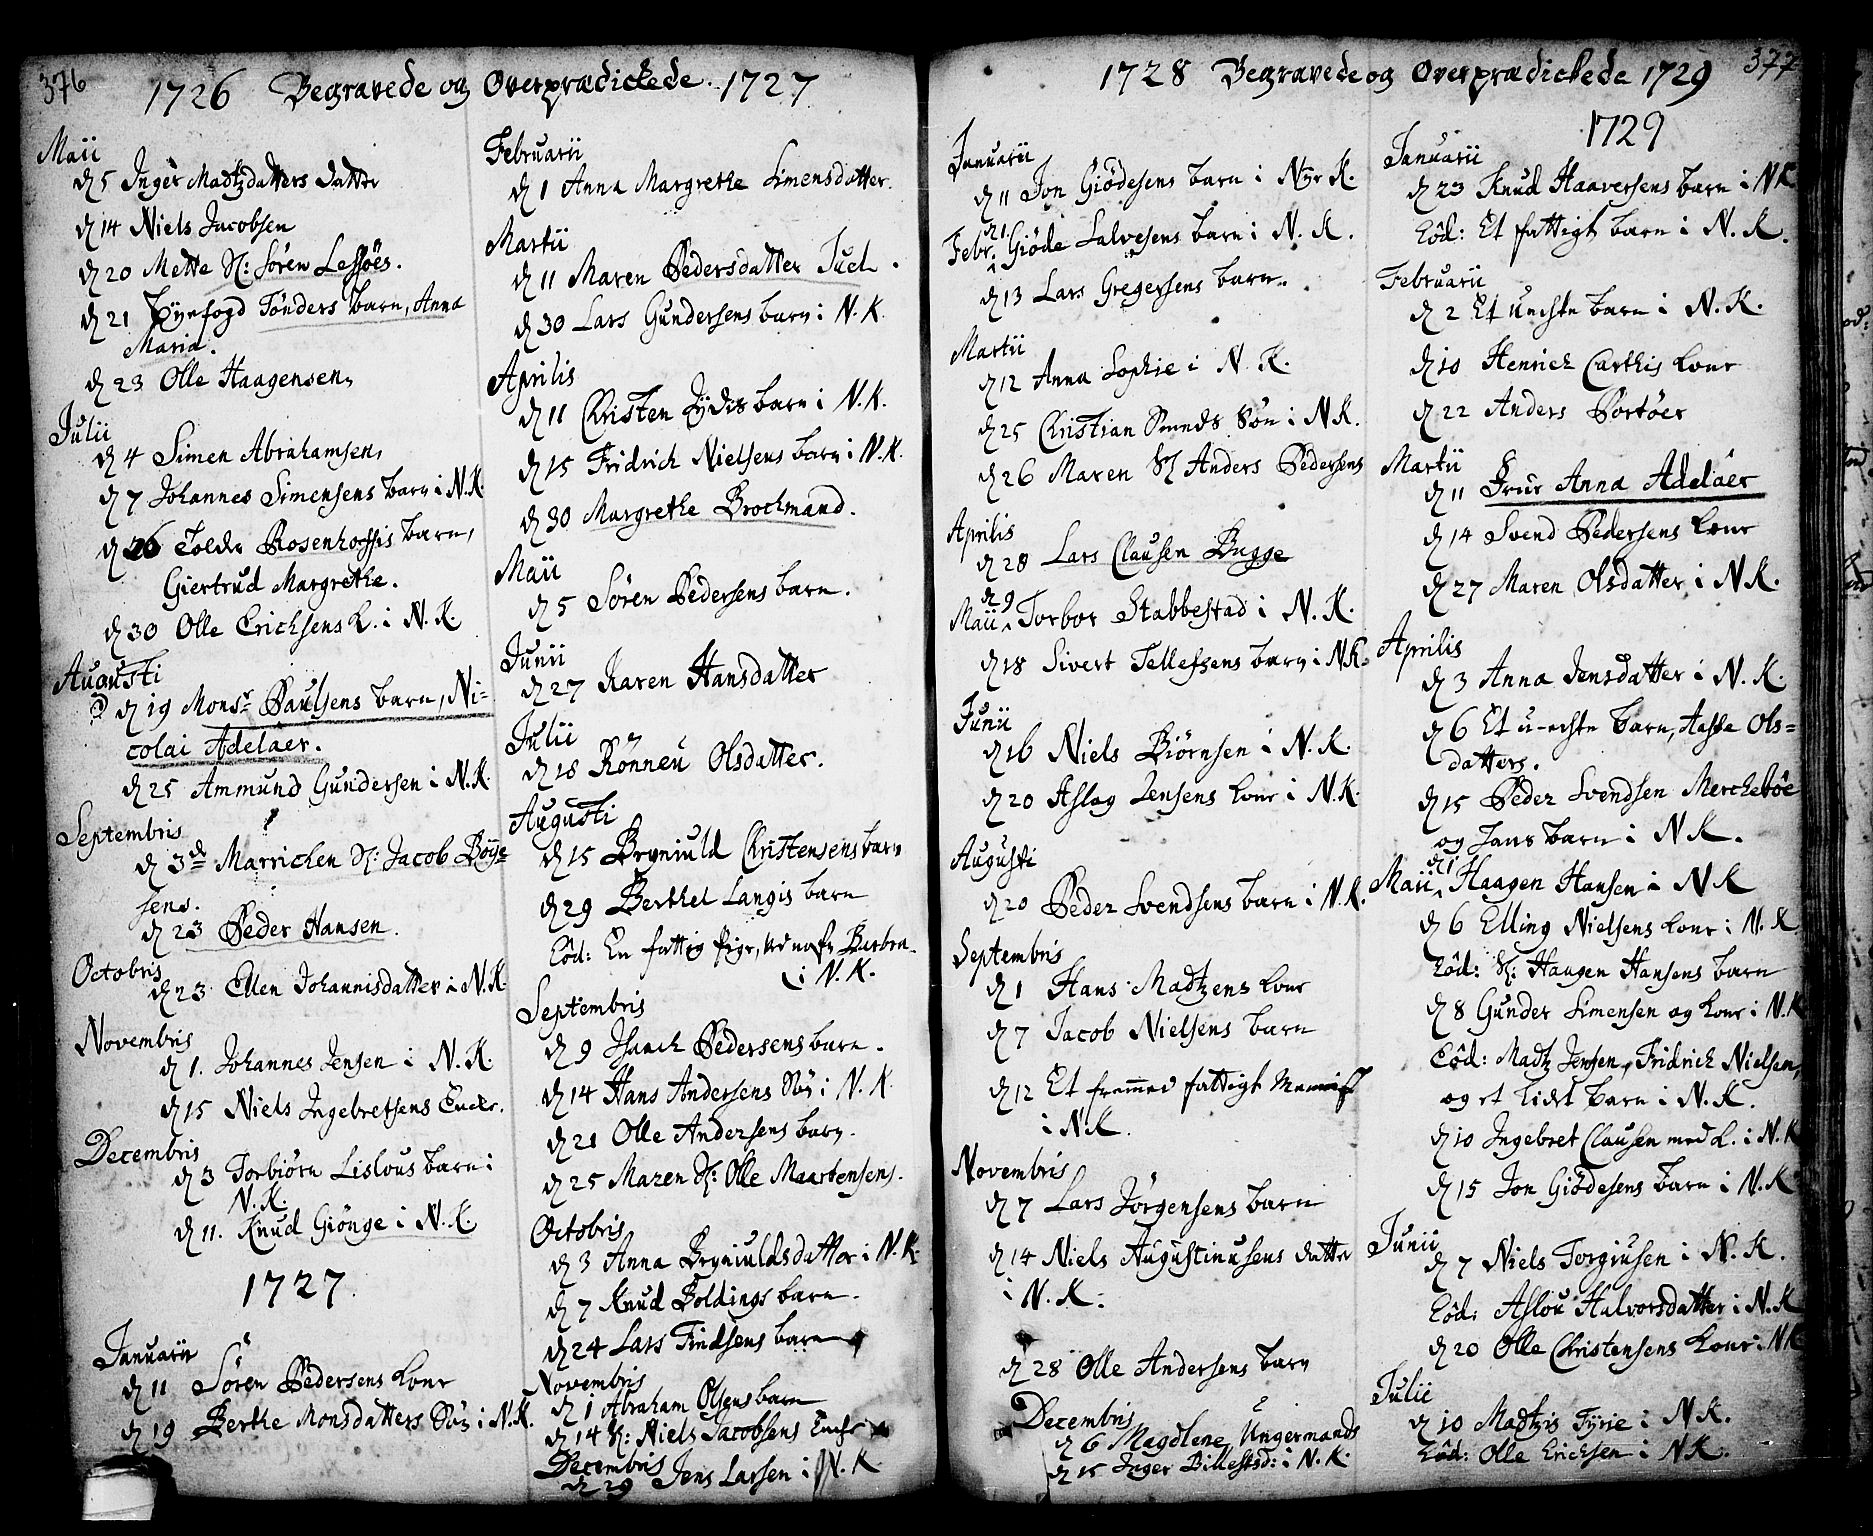 376
1726 Begravede og Overprædickede. 1727
Maii
d 5 Inger Madtzdatters datter
d 14 Niels Jacobsen
d 20 Mette Sl: Sören Lessöes.
d 21 Byefogd Tönders barn, Anna
Maria.
d 23 Olle Haagensen,
Julii
d 4 Simen Abrahamsen,
d 7 Johannes Simensens barn i N.K.
d 26 Tolder Rosenhoffis barn,
Giertrud Margrethe.
d 30 Olle Erichsens K. i N.K.
Augusti
d 19 Monsr Paulsens barn, Ni-
colai Adelaer.
d 25 Ammund Gundersen i N.K.
Septembris
d 3de Marrichen Sl: Jacob Böye
sens.
d 23 Peder Hansen.
Octobris
d 23 Ellen Johannisdatter i N.K.
Novembris
d 1. Johannes Jensen i N.K.
d 15 Niels Ingebretsens Encke.
Decembris
d 3 Torbiörn Lislous barn i
N.K.
d 11. Knud Giönge i N.K.
1727
Januarii
d 11 Sören Pedersens kone
d 19 Berthe Monsdatters Sön i N.K.
Februarii
d 1 Anna Margrethe Simensdatter.
Martii
d 11 Maren Pedersdatter Juel.
d 30 Lars Gundersens barn i N.K.
Aprilis
d 11 Christen Jydes barn i N.K.
d 15 Fridrich Nielsens barn i N.K.
d 30 Margrethe Brochmand.
Maii
d 5 Sören Pedersens barn.
Junii
d 27 Karen Hansdatter
Julii
d 18 Rönneu Olsdatter.
Augusti
d 15 Bryniuld Christensens barn
d 29 Berthel Langis barn
Eôd: En fattig Pige, ved nafn Barbra
i N.K.
Septembris
d 9 Isaach Pedersens barn.
d 14 Hans Andersens Sön i N.K
d 21 Olle Andersens barn.
d 25 Maren Sl: Olle Maartensens.
Octobris
d 3 Anna Bryniuldsdatter i N.K.
d 7 Knud Boldings barn.
d 24 Lars Findsens barn
Novembris
d 1 Abraham Olsens barn
d 14 Sl: Niels Jacobsens Encke
Decembris
d 29 Jens Larsen i N.K.
1728 Begravede og Overprædickede 1729
377
Januarii
d 11 Jon Giödesens barn i Nye K.
d 1
Febr. Giöde Salvesens barn i N.K.
d 13 Lars Gregersens barn.
Martii
d 12 Anna Sophie i N.K.
d 25 Christian Smeds Sön i N.K.
d 26 Maren Sl Anders Pedersens
Aprilis
d 28 Lars Clausen Bugge
d 9
Maii Torbor Stabbestad i N.K.
d 18 Sivert Tellefsens barn i N.K.
Junii
d 16 Niels Biörnsen i N.K.
d 20 Aslag Jensens kone i N.K.
Augusti
d 20 Peder Svendsens barn i N.K.
Septembris
d 1 Hans Madtzens kone
d 7 Jacob Nielsens barn
d 12 Et fremmed fattigt Menniske
i N.K.
Novembris
d 7 Lars Jörgensens barn
d 14 Niels Augustinusens datter
i N.K.
d 28 Olle Andersens barn
Decembris
d 6 Magdlene Ungermands
d 15 Inger Billestsd: i N.K.
1729
Januarii
d 23 Knud Haaversens barn i N K
Eôd: Et fattigt barn i N.K.
Februarii
d 2 Et uechte barn i N.K.
d 10 Henrich Carthis kone
d 22 Anders Portöer
Martii
d 11 Frue Anna Adelaer
d 14 Svend Pedersens kone
d 27 Maren Olsdatter i N K.
Aprilis
d 3 Anna Jensdatter i N.K.
d 6 Et u-echte barn, Aasse Ols=
datters.
d 15 Peder Svendsen Mercheböe
og Hans barn i N K.
d 1
Maii Haagen Hansen i N K
d 6 Elling Nielsens kone i N.K.
Eôd: Sl: Haagen Hansens barn
d 8 Gunder Simensen og kone i N.K
Eôd: Madtz Jensen, Fridrich Nielsen,
og et lidet barn i N.K.
d 10 Ingebret Clausen med K. i N.K
d 15 Jon Giödesens barn i N.K
Junii
d 7 Niels Torgiusen i N.K.
Eôd: Aslou Halvorsdatter i N.K
d 20 Olle Christensens kone i N.K
Julii
d 10 Madtzis Fyrie i N K.
Eôd: Olle Erichsen i N K.